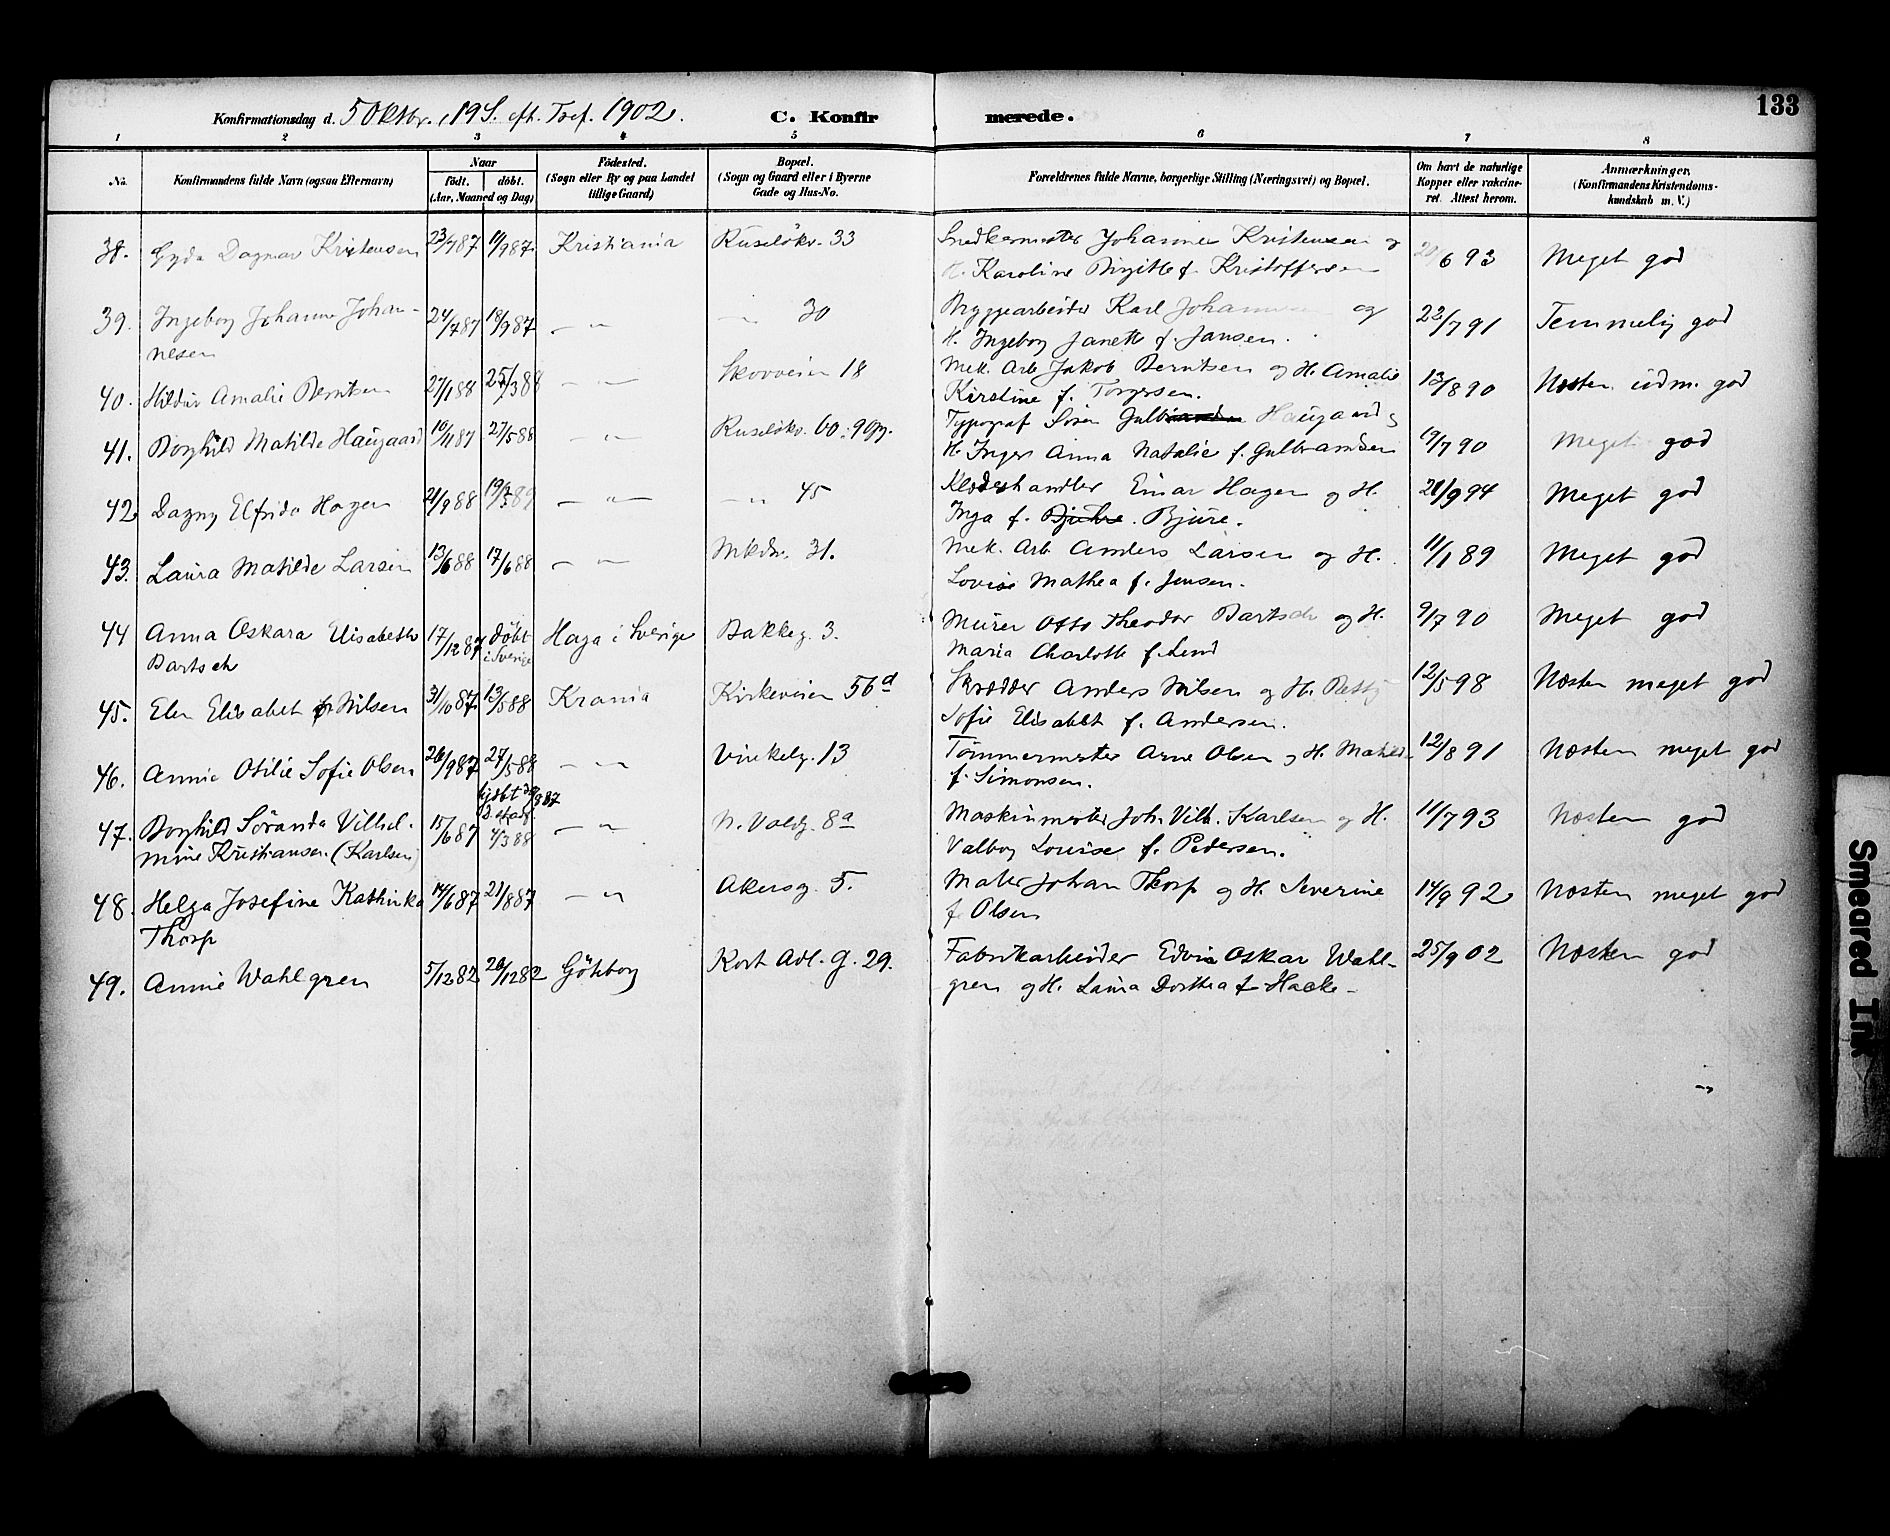 Konfirmationsdag d. 5 Oktbr., 19 S. eft. Tref. 1902. C. Konfirmerede. 133
1 2 3 4 5 6 7 8
No. Konfirmandens fulde Navn (ogsaa Efternavn) Naar födt. döbt. (Aar, Maaned og Dag) Födested. (Sogn eller By og paa Landet tillige Gaard) Bopæl. (Sogn og Gaard eller i Byerne Gade og Hus-No. Forældrenes fulde Navne, borgerlige Stilling (Næringsvei) og Bopæl. Om havt de naturlige Kopper eller vaksineret. Attest herom. Anmærkninger, (Konfirmandens Kristendomskundskab m. V.)
38. Gyda Dagmar Kristensen 23/7 87 11/9 87. Kristiania Ruselökv. 33 Snedkermester Johannes Kristensen og
H. Karoline Birgitte f. Kristoffersen 6 93 Meget god
39. Ingeborg Johanne Johan- 24/7 87 18/9 87 — " — — " 30 Bryggearbeider Karl Johannesen og
nesen H. Ingeborg Janette f. Jansen. 22/7 91 Temmelig god
40. Hildur Amalie Berntsen 27/1 88 25/3 88 — " — Skovveien 18 Mek. Arb. Jakob Berntsen og H. Amalie
Kirstine f. Torgersen. 13/8 90 Næsten udm. god
41. Borghild Matilde Haugaard 10/11 87 27/5 88 — " — Ruselökv. 60. 9 Opg. Typograf Sören Haugaard og
H. Inger Anna Natalie f. Gulbrandsen 19/7 90 Meget god
42. Dagny Elfrida Hagen 21/9 88 19/3 89 — " — — " 45 Klædeshandler Einar Hagen og H.
Inga f. Bjuhre. Bjure. 21/9 94 Meget god
43. Laura Matilde Larsen 13/6 88 17/6 88 — " — Mkdv. 31. Mek. Arb. Anders Larsen og H.
Lovise Mathea f. Jensen. 11/1 89 Meget god
44 Anna Oskara Elisabeth 17/12 87 döbt i Sverige Haga i Sverige Bakkeg. 3. Murer Otto Theodor Bartsch og H.
Bartsch Maria Charlotte f. Lind 9/7 90 Meget god
45. Elen Elisabet Nilsen 31/10 87. 13/5 88 Krania Kirkeveien 56d Skrædder Anders Nilsen og H. Betsy
Sofie Elisabet f. Andersen. 12/5 98 Næsten meget god
46. Annie Otilie Sofie Olsen 26/9 87 27/5 88 — " — Vinkelg. 13 Tömmermester Arne Olsen og H. Matilde
f. Simonsen. 12/8 91 Næsten meget god
47. Borghild Söranda Vilhel- 15/6 87 hjdbt 87 d. stadf. 4/3 88 — " N. Voldg. 8a Maskinmester Joh. Vilh. Karlsen og H.
mine Kristiansen (Karlsen) Valborg Louise f. Pedersen. 11/7 93 Næsten god
48. Helga Josefine Kathinka 14/6 87 21/8 87 — " Akersg. 5. Maler Johan Thorp og H. Severine
Thorp f. Olsen 14/9 92 Næsten meget god
49. Annie Wahlgren 5/12 82 26/12 82 Göteborg Kort Adl. G. 29. Fabrikarbeider Edvin Oskar Wahl-
gren og H. Laura Dorthea f. Hacke — 25/9 02 Næsten god
Smeared Ink